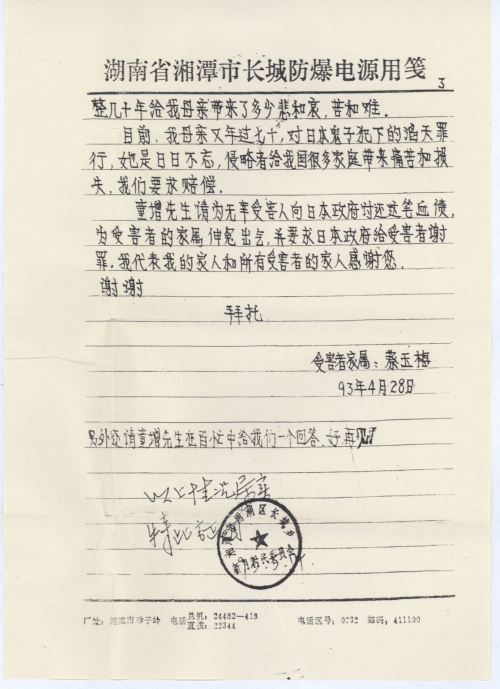 湖南省湘潭市长城防爆电源用笺
3
整几十年给我母亲带来了多少悲和哀，苦和难．
目前，我母亲又年过七十，对日本鬼子犯下的滔天罪
行，她也是日日不忘，侵略者给我国很多家庭带来痛苦和损
失，我们要求赔偿．
童增先生请为无辜受害人向日本政府讨还这笔血债，
为受害者的家属伸冤出气，并要求日本政府给受害者谢
罪．我代表我的家人和所有受害者的家人感谢您．
谢谢
拜托．
受害者家属：蔡玉梅
93年4月28日
另外还请童增先生在百忙中给我们一个回答．好，再见
以上情况属实
特此证明
厂址：湘潭市砂子岭 电话总机：24482—418
直拨：22344
电话区号：0732 邮码：411100